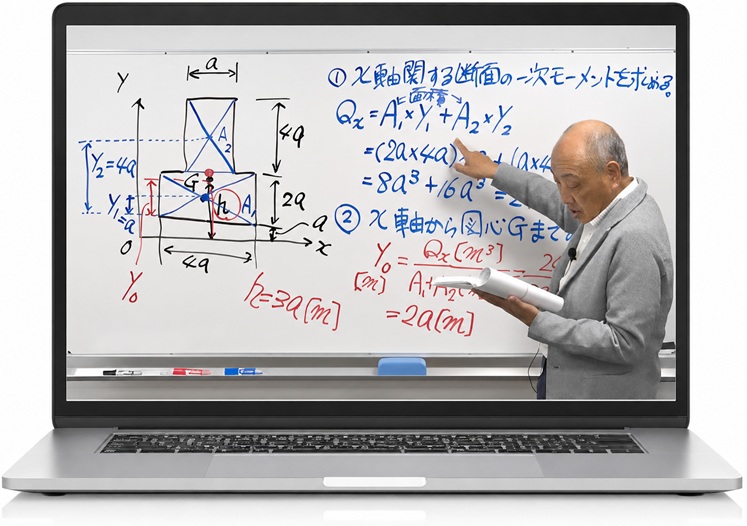 ① x軸関する断面の一次モーメントを求める。
面積
Qx = A₁×Y₁ + A₂×Y₂
=(2a×4a)
=8a³+16a³=2
② x軸から図心Gまで
Y₀ = Qx[m³]
[m] A₁+A₂[m
=2a[m]
h=3a[m]
a
Y
4a
A₂
Y₂=4a
G
2a
Y₁=a
h
A₁
a
O
x
4a
Y₀